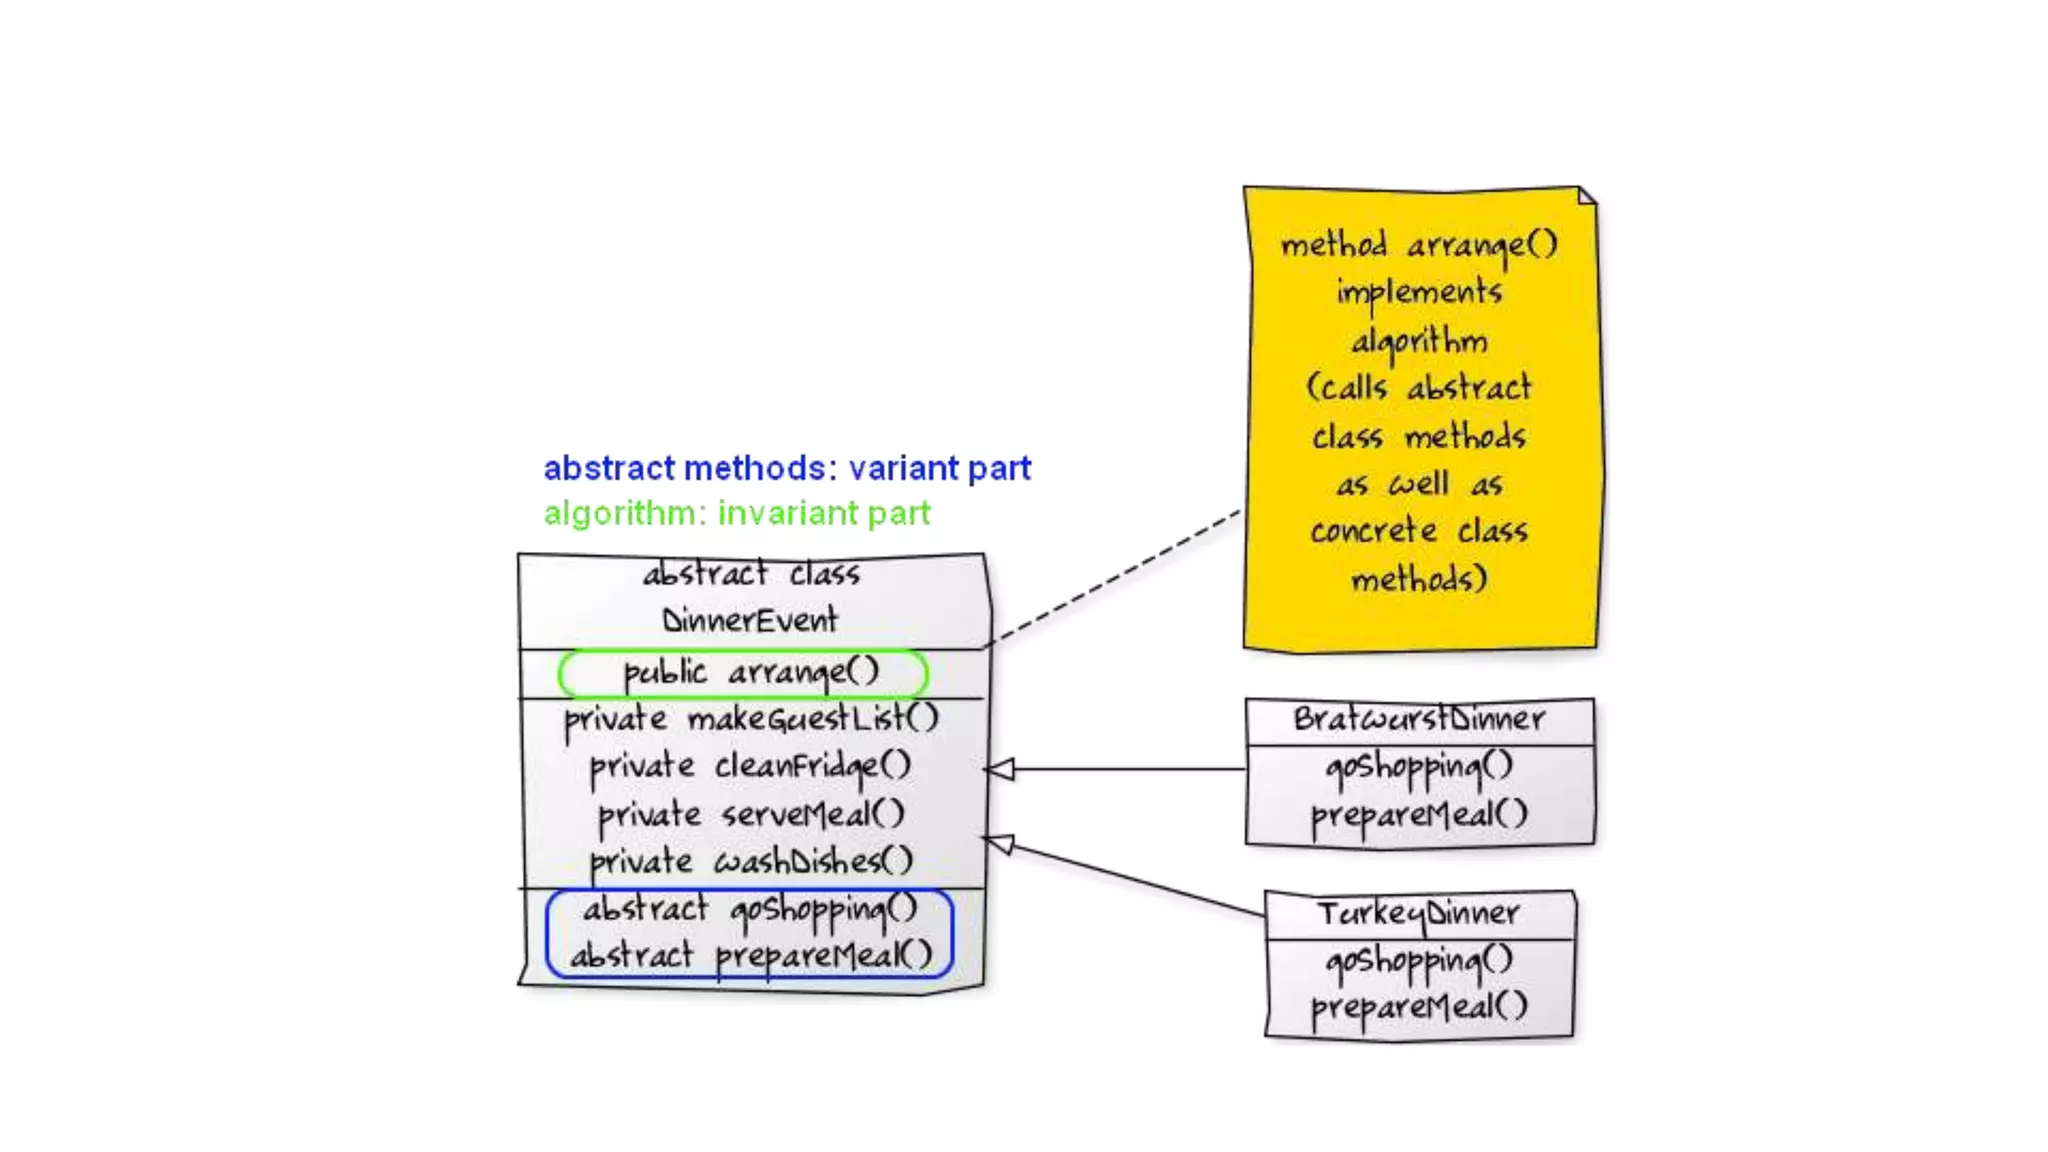 method arrange()
implements
algorithm
(calls abstract
class methods
as well as
concrete class
methods)
abstract methods: variant part
algorithm: invariant part
abstract class
DinnerEvent
public arrange()
private makeGuestList()
private cleanFridge()
private serveMeal()
private washDishes()
abstract goShopping()
abstract prepareMeal()
BratwurstDinner
goShopping()
prepareMeal()
TurkeyDinner
goShopping()
prepareMeal()